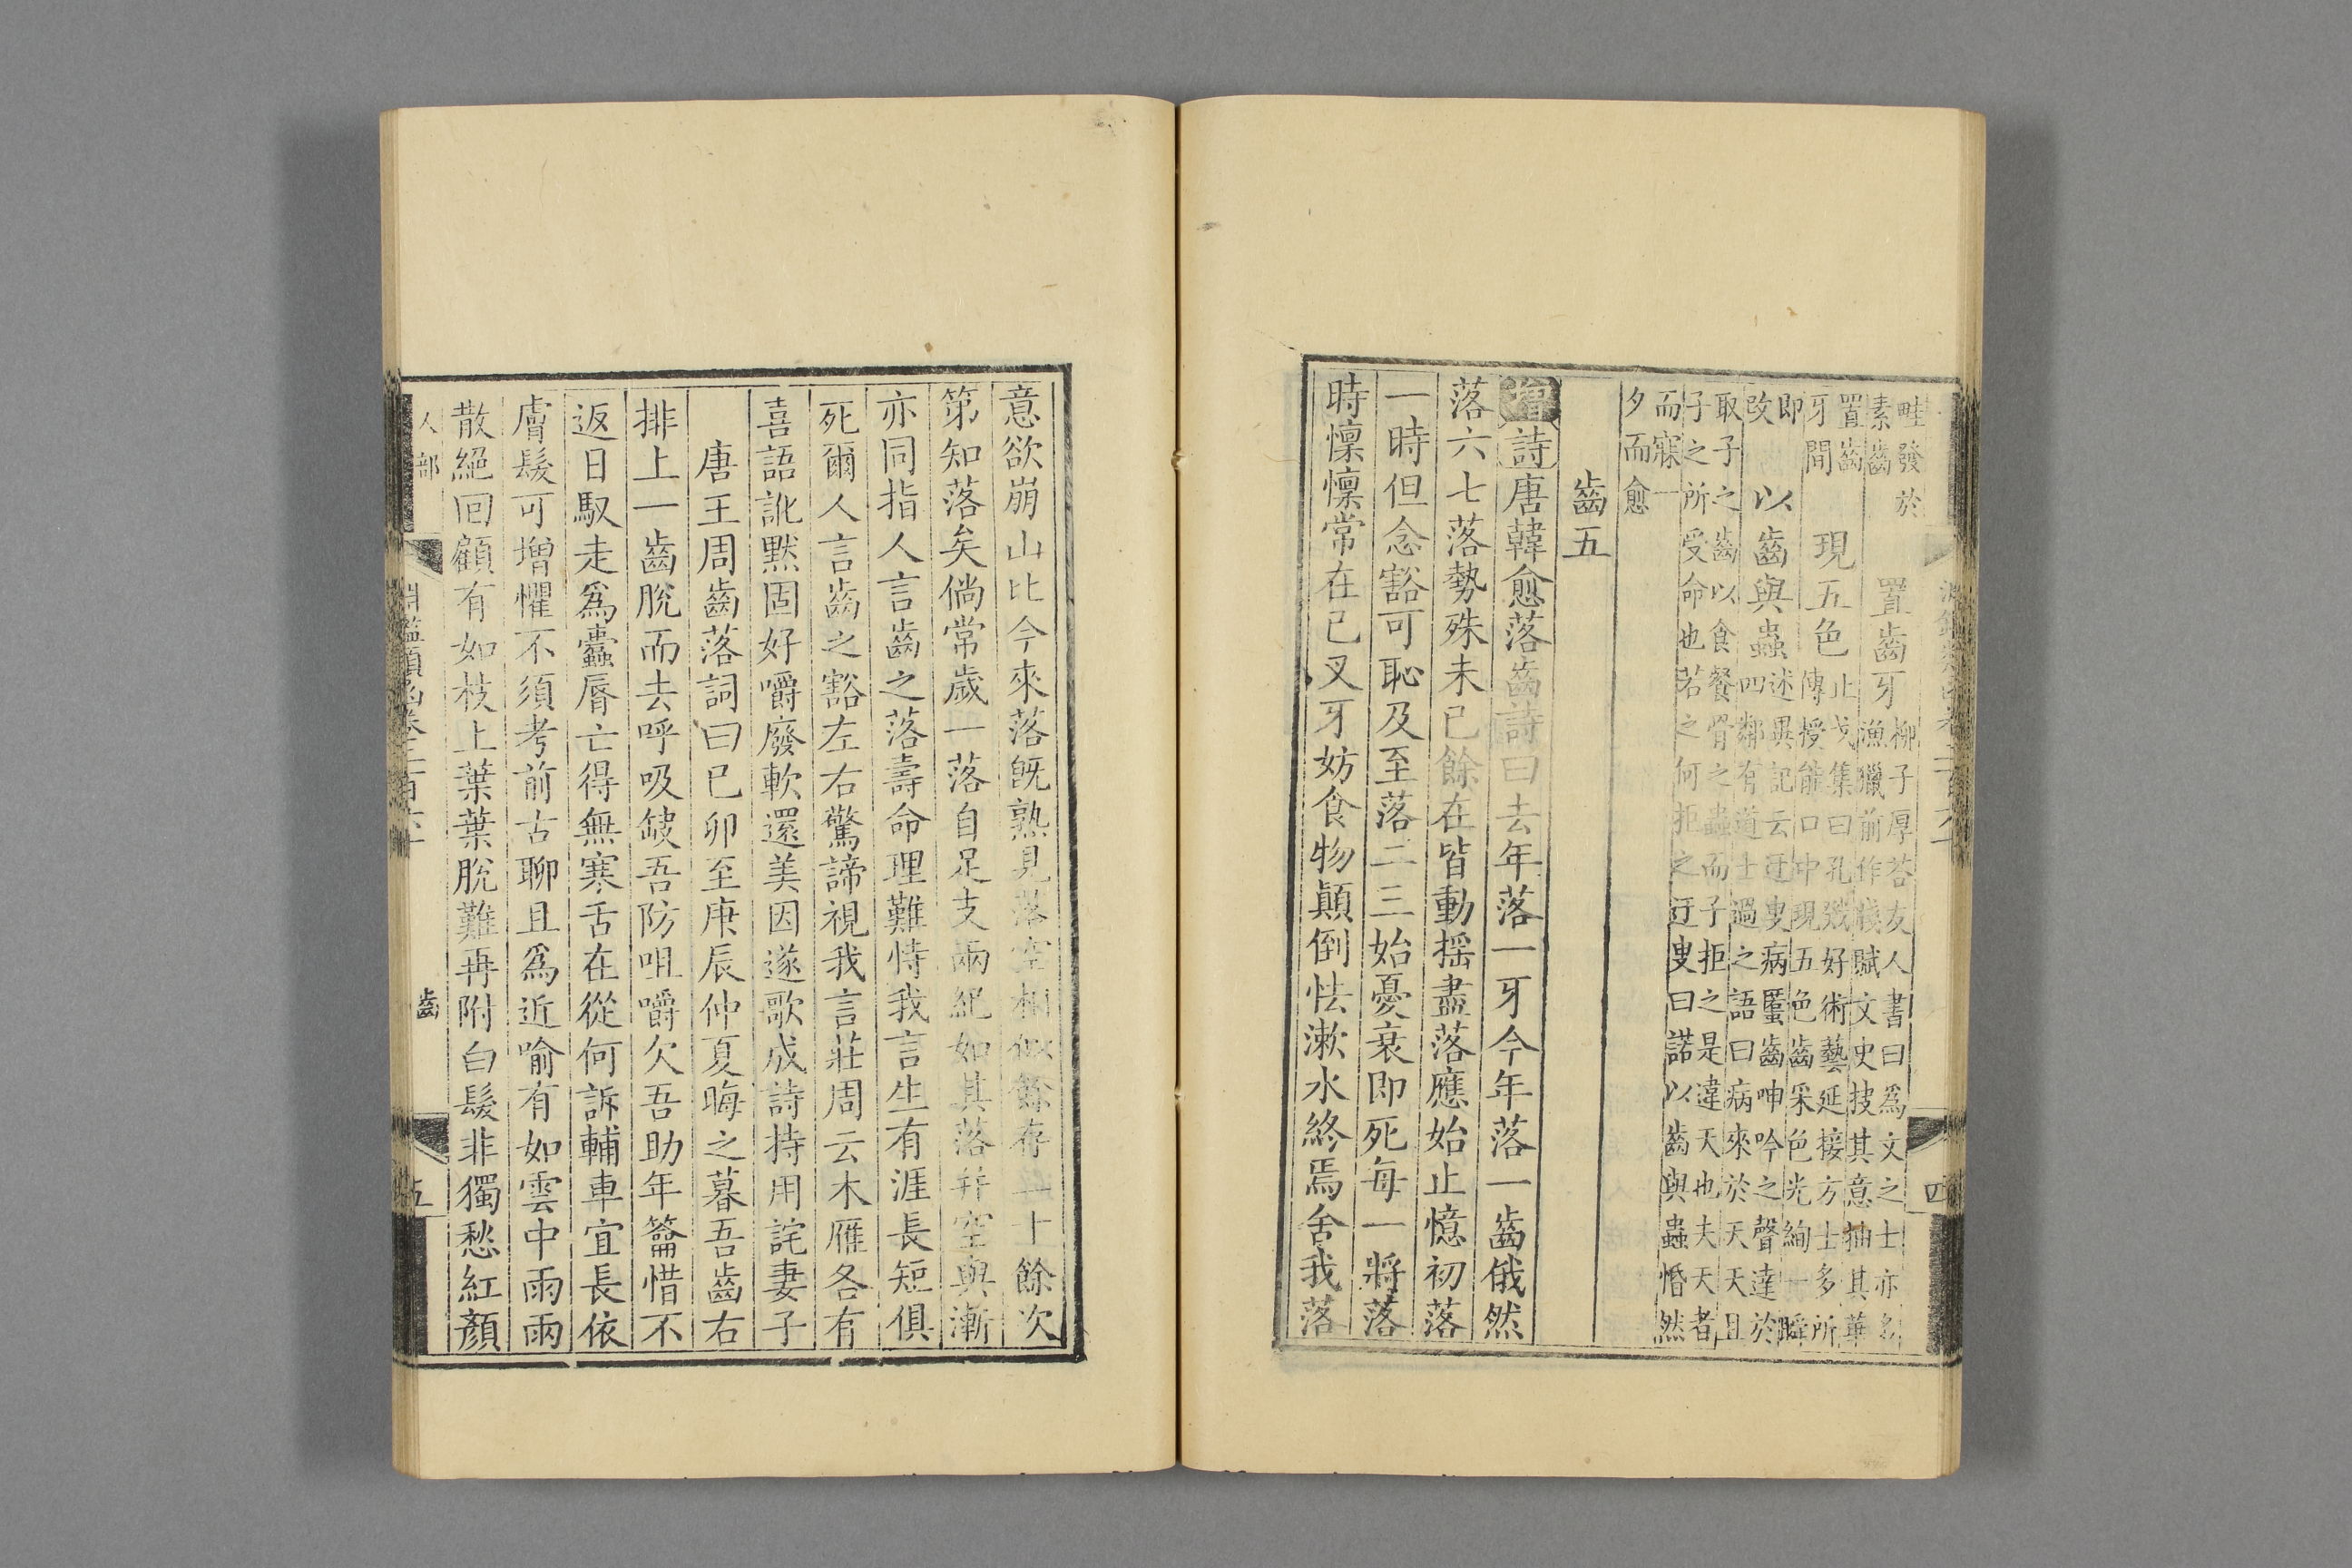 畦發於
素齒
置齒牙
柳子厚荅友人書曰爲文之士亦多
漁獵前作戕賊文史技其意抽其華
置齒
牙間
現五色
止戈集曰孔戣好術藝延接方士多所
傳授能口中現五色齒采色光絢一瞬
即
改
以齒與蟲
述異記云迂叟病𧏾齒呻吟之聲達於
四鄰有道士過之語曰病來於天天且
取子之齒以食餐骨之蟲而子拒之是違天也夫天者
子之所受命也若之何拒之迂叟曰諾以齒與蟲惛然
而寐一
夕而愈
齒五
增詩唐韓愈落齒詩曰去年落一牙今年落一齒俄然
落六七落勢殊未已餘在皆動搖盡落應始止憶初落
一時但念豁可恥及至落二三始憂衰即死每一將落
時懔懔常在已叉牙妨食物顛倒怯漱水終焉舍我落
四
意欲崩山比今來落旣熟見落空相似餘存二十餘次
第知落矣倘常歲一落自足支兩紀如其落并空與漸
亦同指人言齒之落壽命理難恃我言生有涯長短俱
死爾人言齒之豁左右驚諦視我言莊周云木雁各有
喜語訛默固好嚼廢軟還美因遂歌成詩持用詫妻子
唐王周齒落詞曰已卯至庚辰仲夏晦之暮吾齒右
排上一齒脫而去呼吸缺吾防咀嚼欠吾助年籥惜不
返日馭走爲蠹脣亡得無寒舌在從何訴輔車宜長依
膚髮可增懼不須考前古聊且爲近喻有如雲中雨雨
散絕回顧有如枝上葉葉脫難再附白髮非獨愁紅顏
人部
淵鑑類函卷二百六十
齒
五